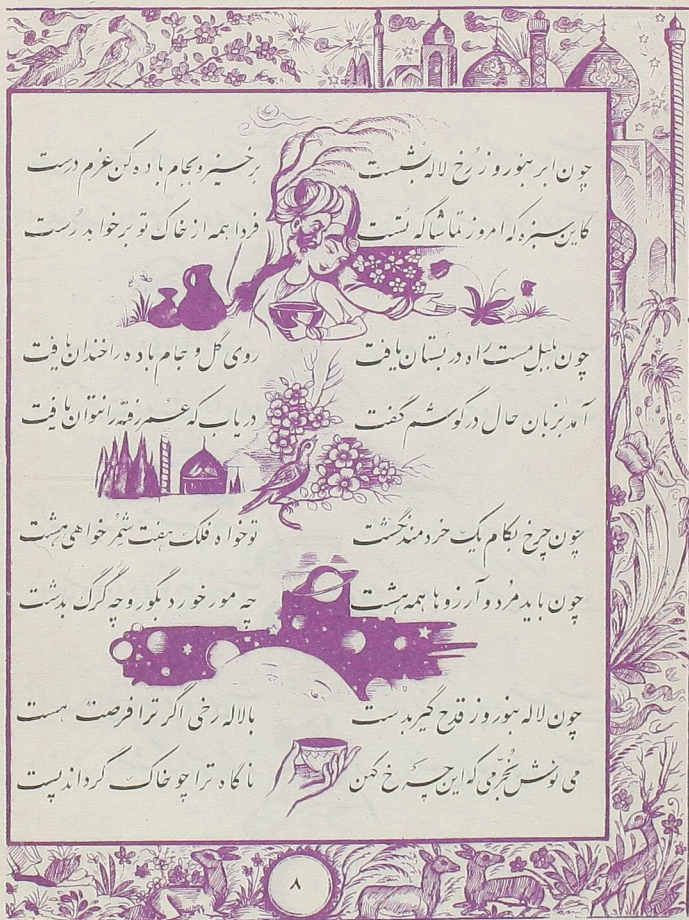 چون ابر بنوروز رخ لاله بشست برخیز و بجام باده کن عزم درست
کاین سبزه که امروز تماشاگه تست فردا همه از خاک تو برخواهد رست
چون بلبل مست راه در بستان یافت روی گل و جام باده را خندان یافت
آمد بزبان حال در گوشم گفت دریاب که عمر رفته را نتوان یافت
چون چرخ بکام یک خردمند نگشت تو خواه فلک هفت شمر خواهی هشت
چون باید مرد و آرزوها همه هشت چه مور خورد بگور و چه گرگ بدشت
چون لاله بنوروز قدح گیر بدست با لاله رخی اگر ترا فرصت هست
می نوش بخرمی که این چرخ کهن ناگاه ترا چو خاک گرداند پست
۸